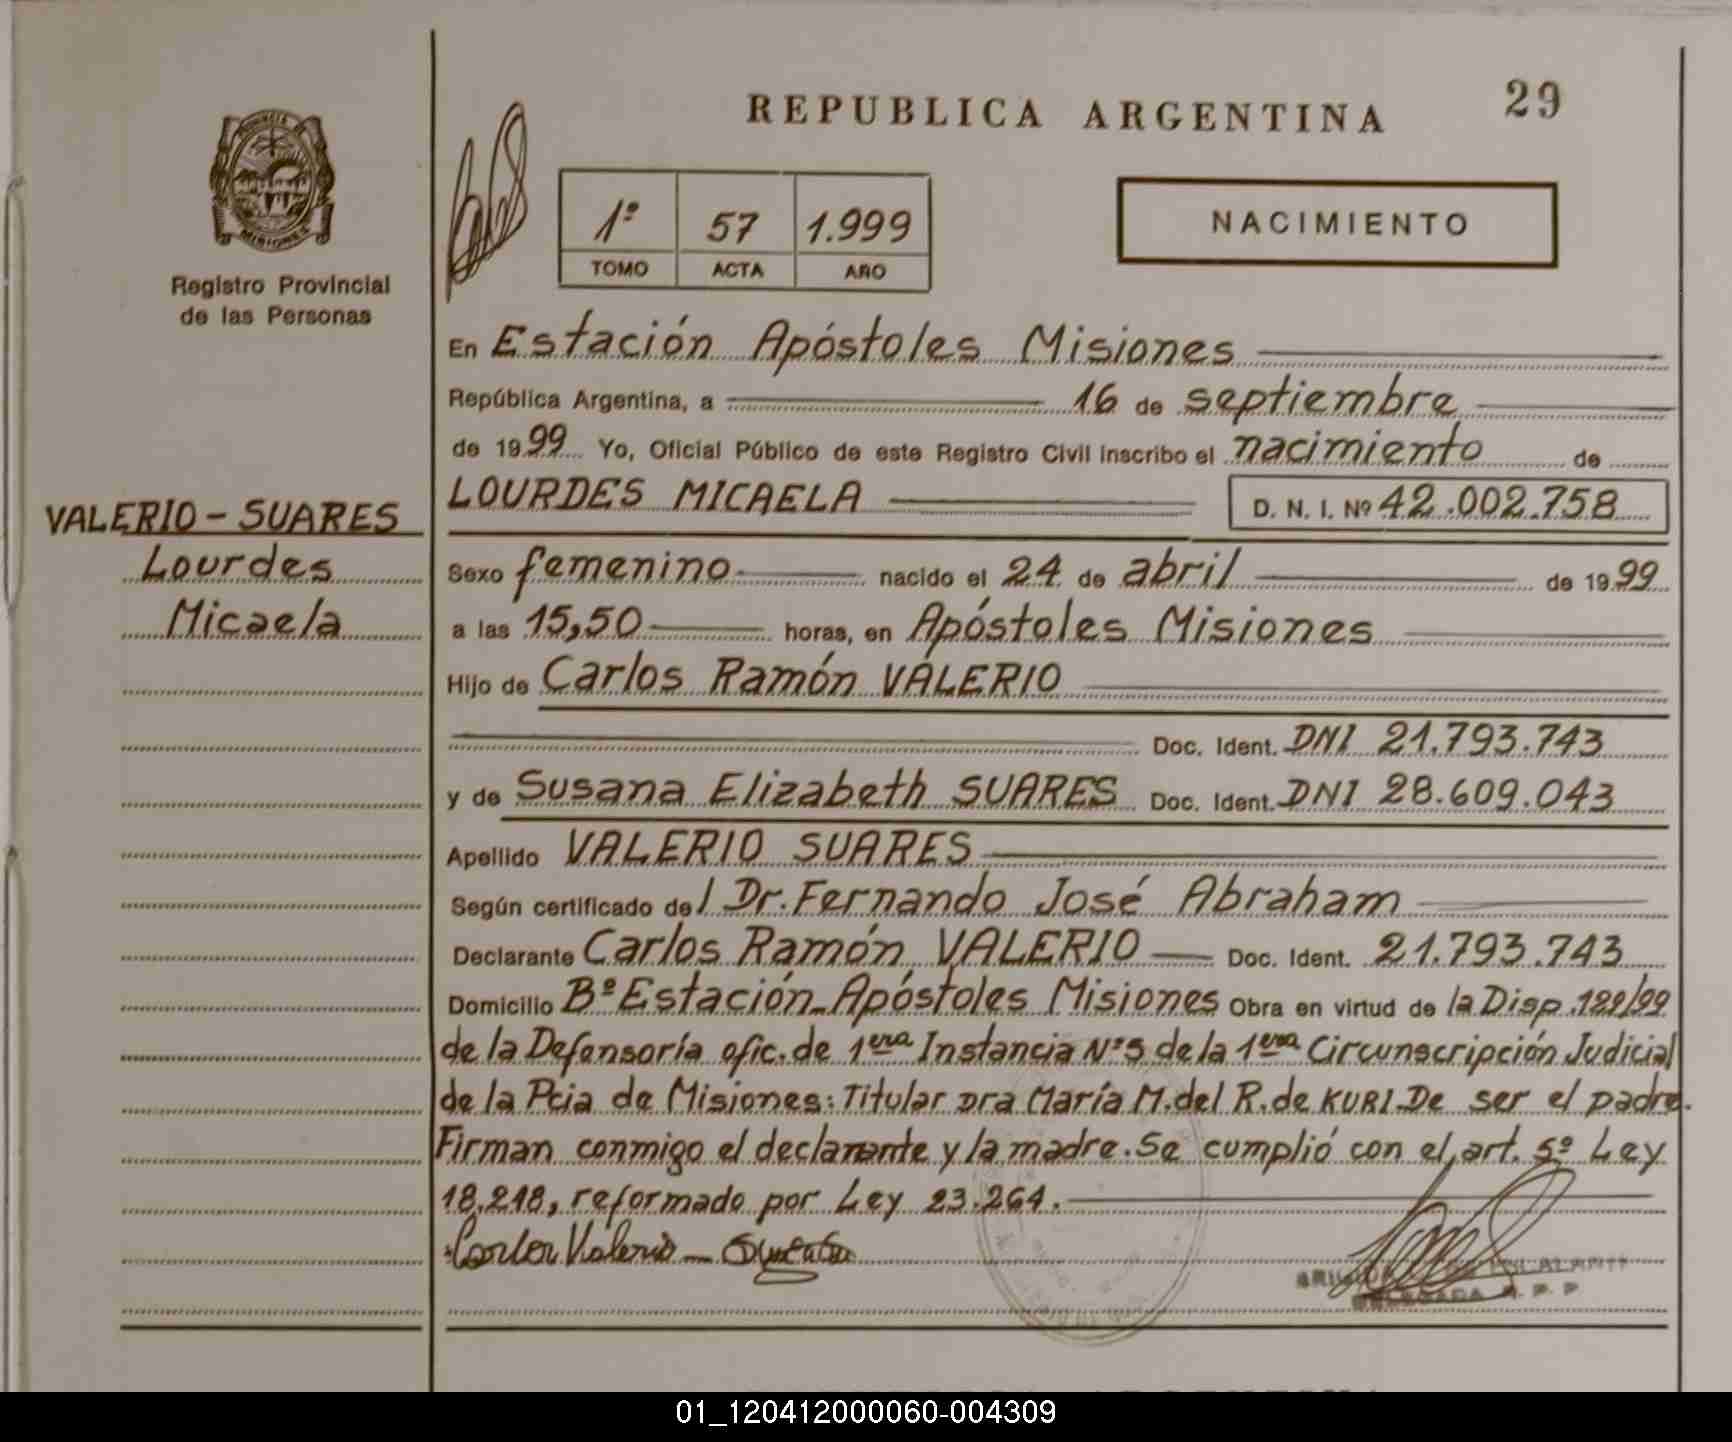 REPUBLICA ARGENTINA
29
PROVINCIA DE
MISIONES
Registro Provincial
de las Personas
1º 57 1.999
TOMO ACTA AÑO
NACIMIENTO
VALERIO - SUARES
Lourdes
Micaela
En Estación Apóstoles Misiones
República Argentina, a 16 de septiembre
de 1999 Yo, Oficial Público de este Registro Civil inscribo el nacimiento de
LOURDES MICAELA D. N. I. Nº 42.002.758
Sexo femenino nacido el 24 de abril de 1999
a las 15,50 horas, en Apóstoles Misiones
Hijo de Carlos Ramón VALERIO
Doc. Ident. DNI 21.793.743
y de Susana Elizabeth SUARES Doc. Ident. DNI 28.609.043
Apellido VALERIO SUARES
Según certificado del Dr. Fernando José Abraham
Declarante Carlos Ramón VALERIO Doc. Ident. 21.793.743
Domicilio Bº Estación Apóstoles Misiones Obra en virtud de la Disp.
de la Defensoría ofic. de 1era Instancia Nº de la 1era Circunscripción Judicial
de la Pcia de Misiones: Titular Dra María M. del R. de KURI. De ser el padre.
Firman conmigo el declarante y la madre. Se cumplió con el art. 5º Ley
18.248, reformado por Ley 23.264.
Carlos Valerio
01_120412000060-004309